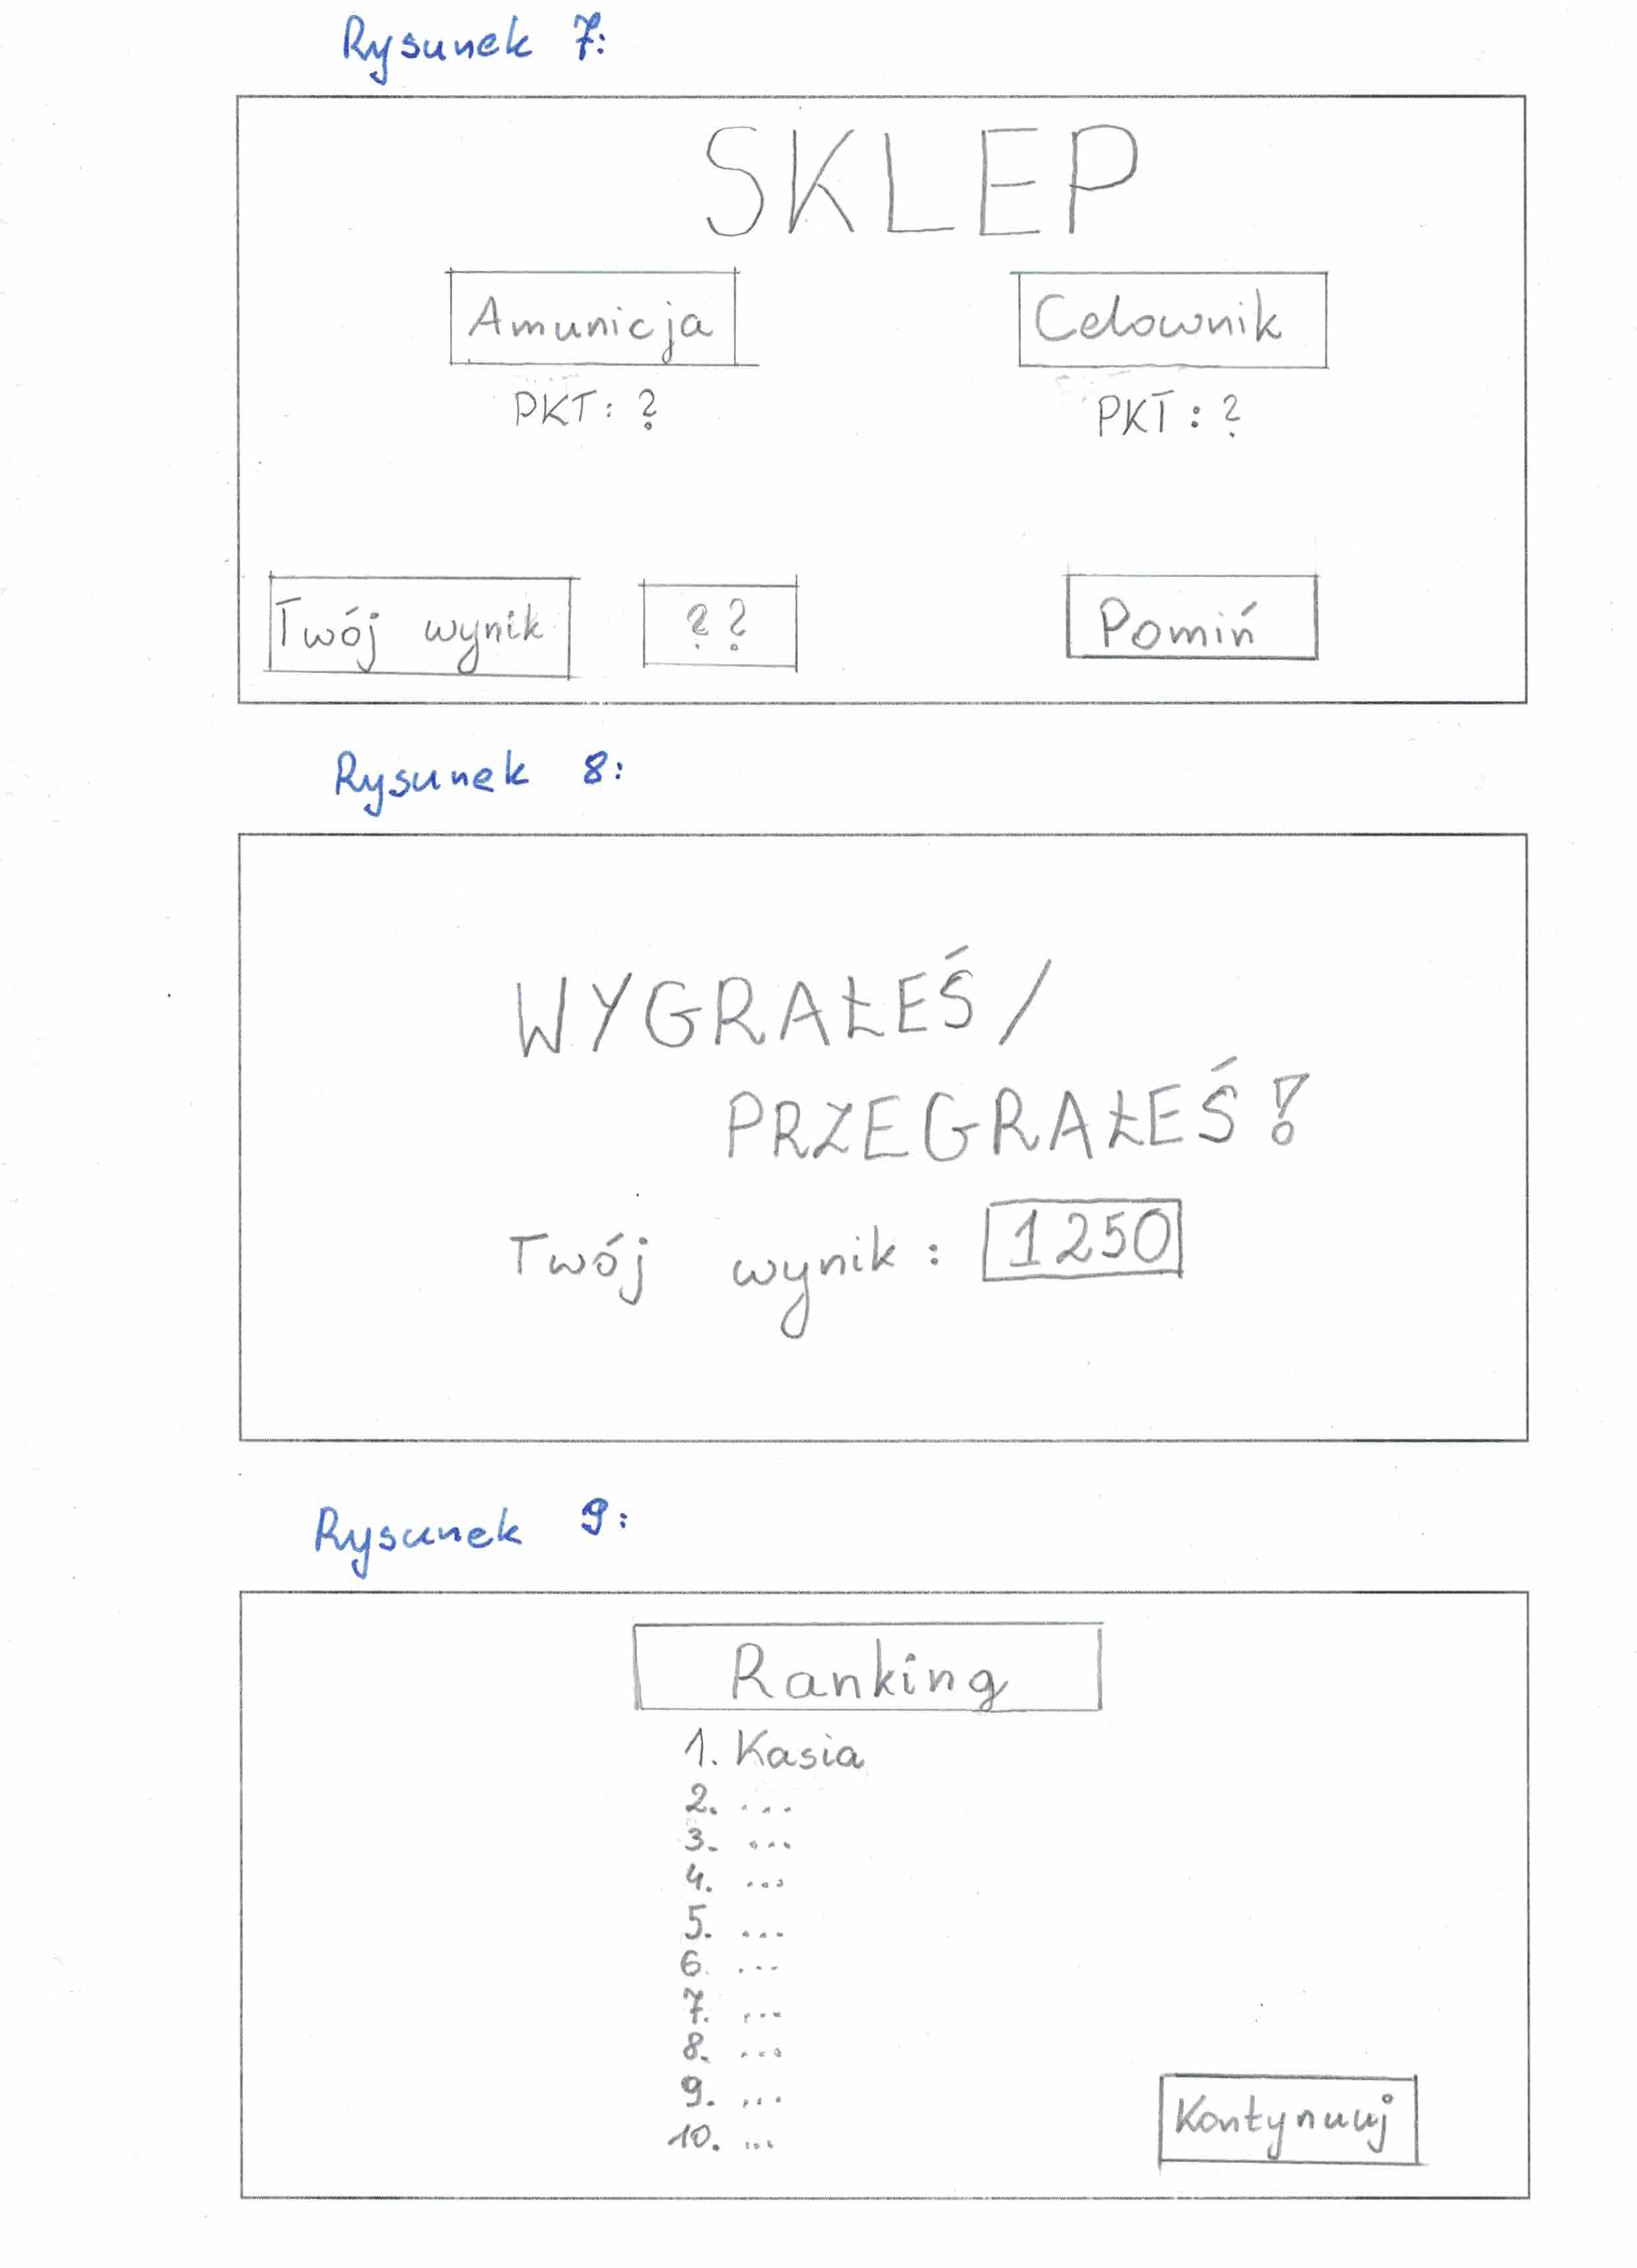 Rysunek 7:
SKLEP
Amunicja Celownik
PKT: ? PKT: ?
Twój wynik ?? Pomiń
Rysunek 8:
WYGRAŁEŚ/
PRZEGRAŁEŚ!
Twój wynik: 1250
Rysunek 9:
Ranking
1. Kasia
2. ...
3. ...
4. ...
5. ...
6. ...
7. ...
8. ...
9. ...
10. ...
Kontynuuj